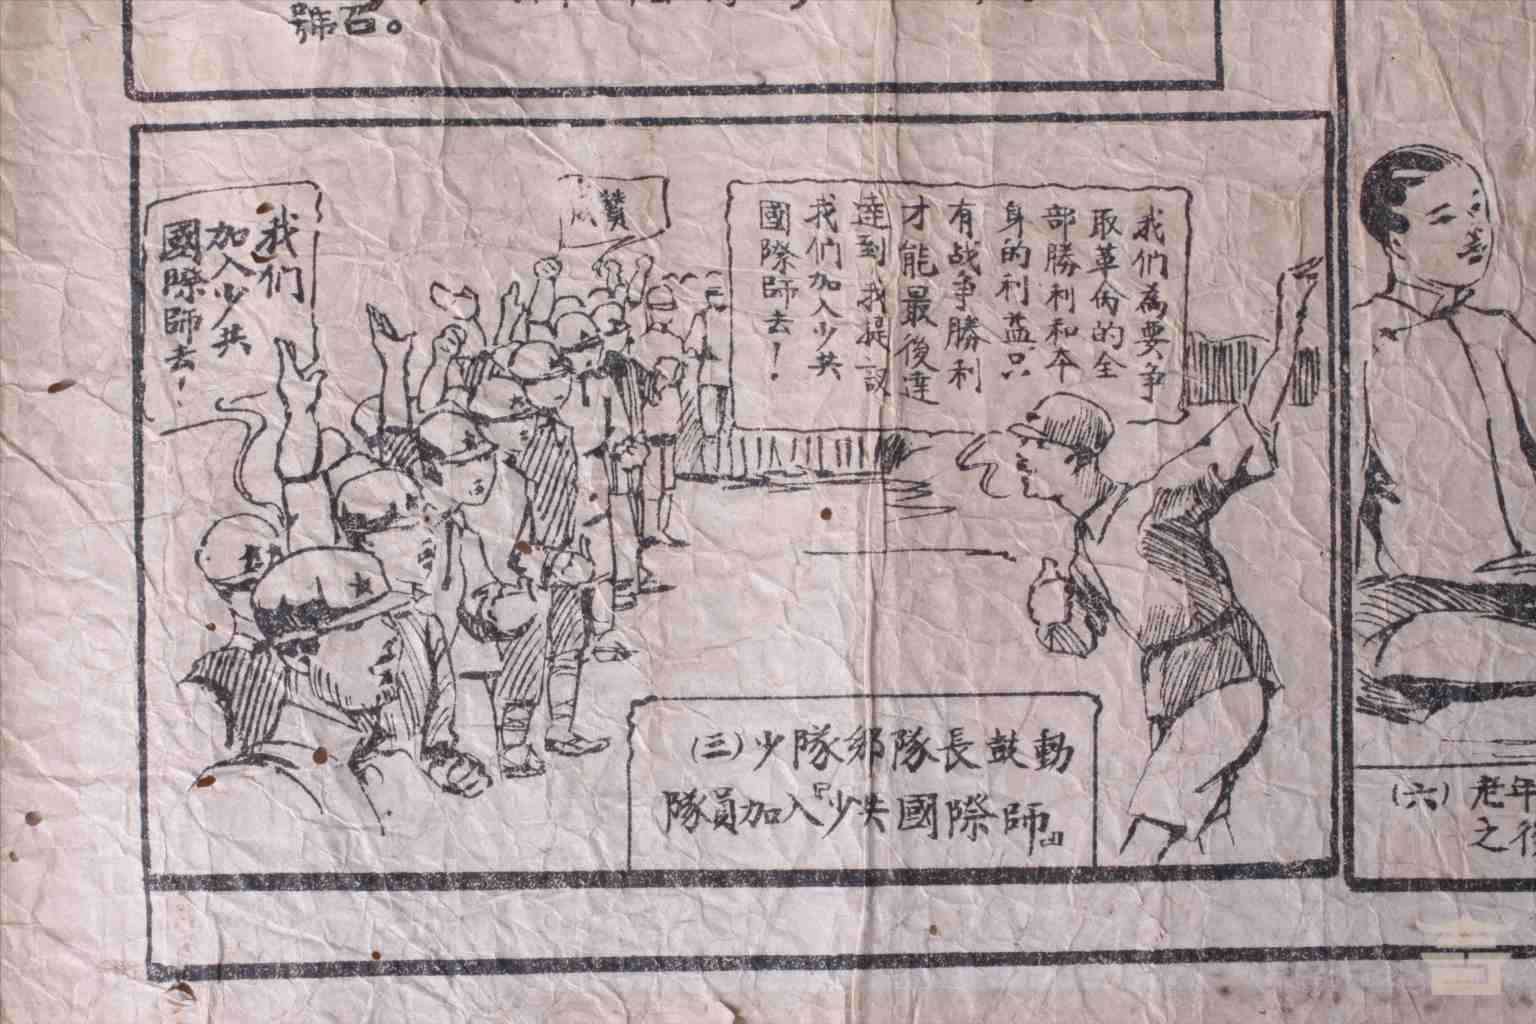 號召。
我们為要爭
取革命的全
部勝利和本
身的利益只
有战爭勝利
才能最後達
達到我提議
我们加入少共
國際師去！
贊
成
我们
加入少共
國際師去！
(三)少隊鄉隊長鼓動
隊員加入『少共國際師』
(六)老年
之後